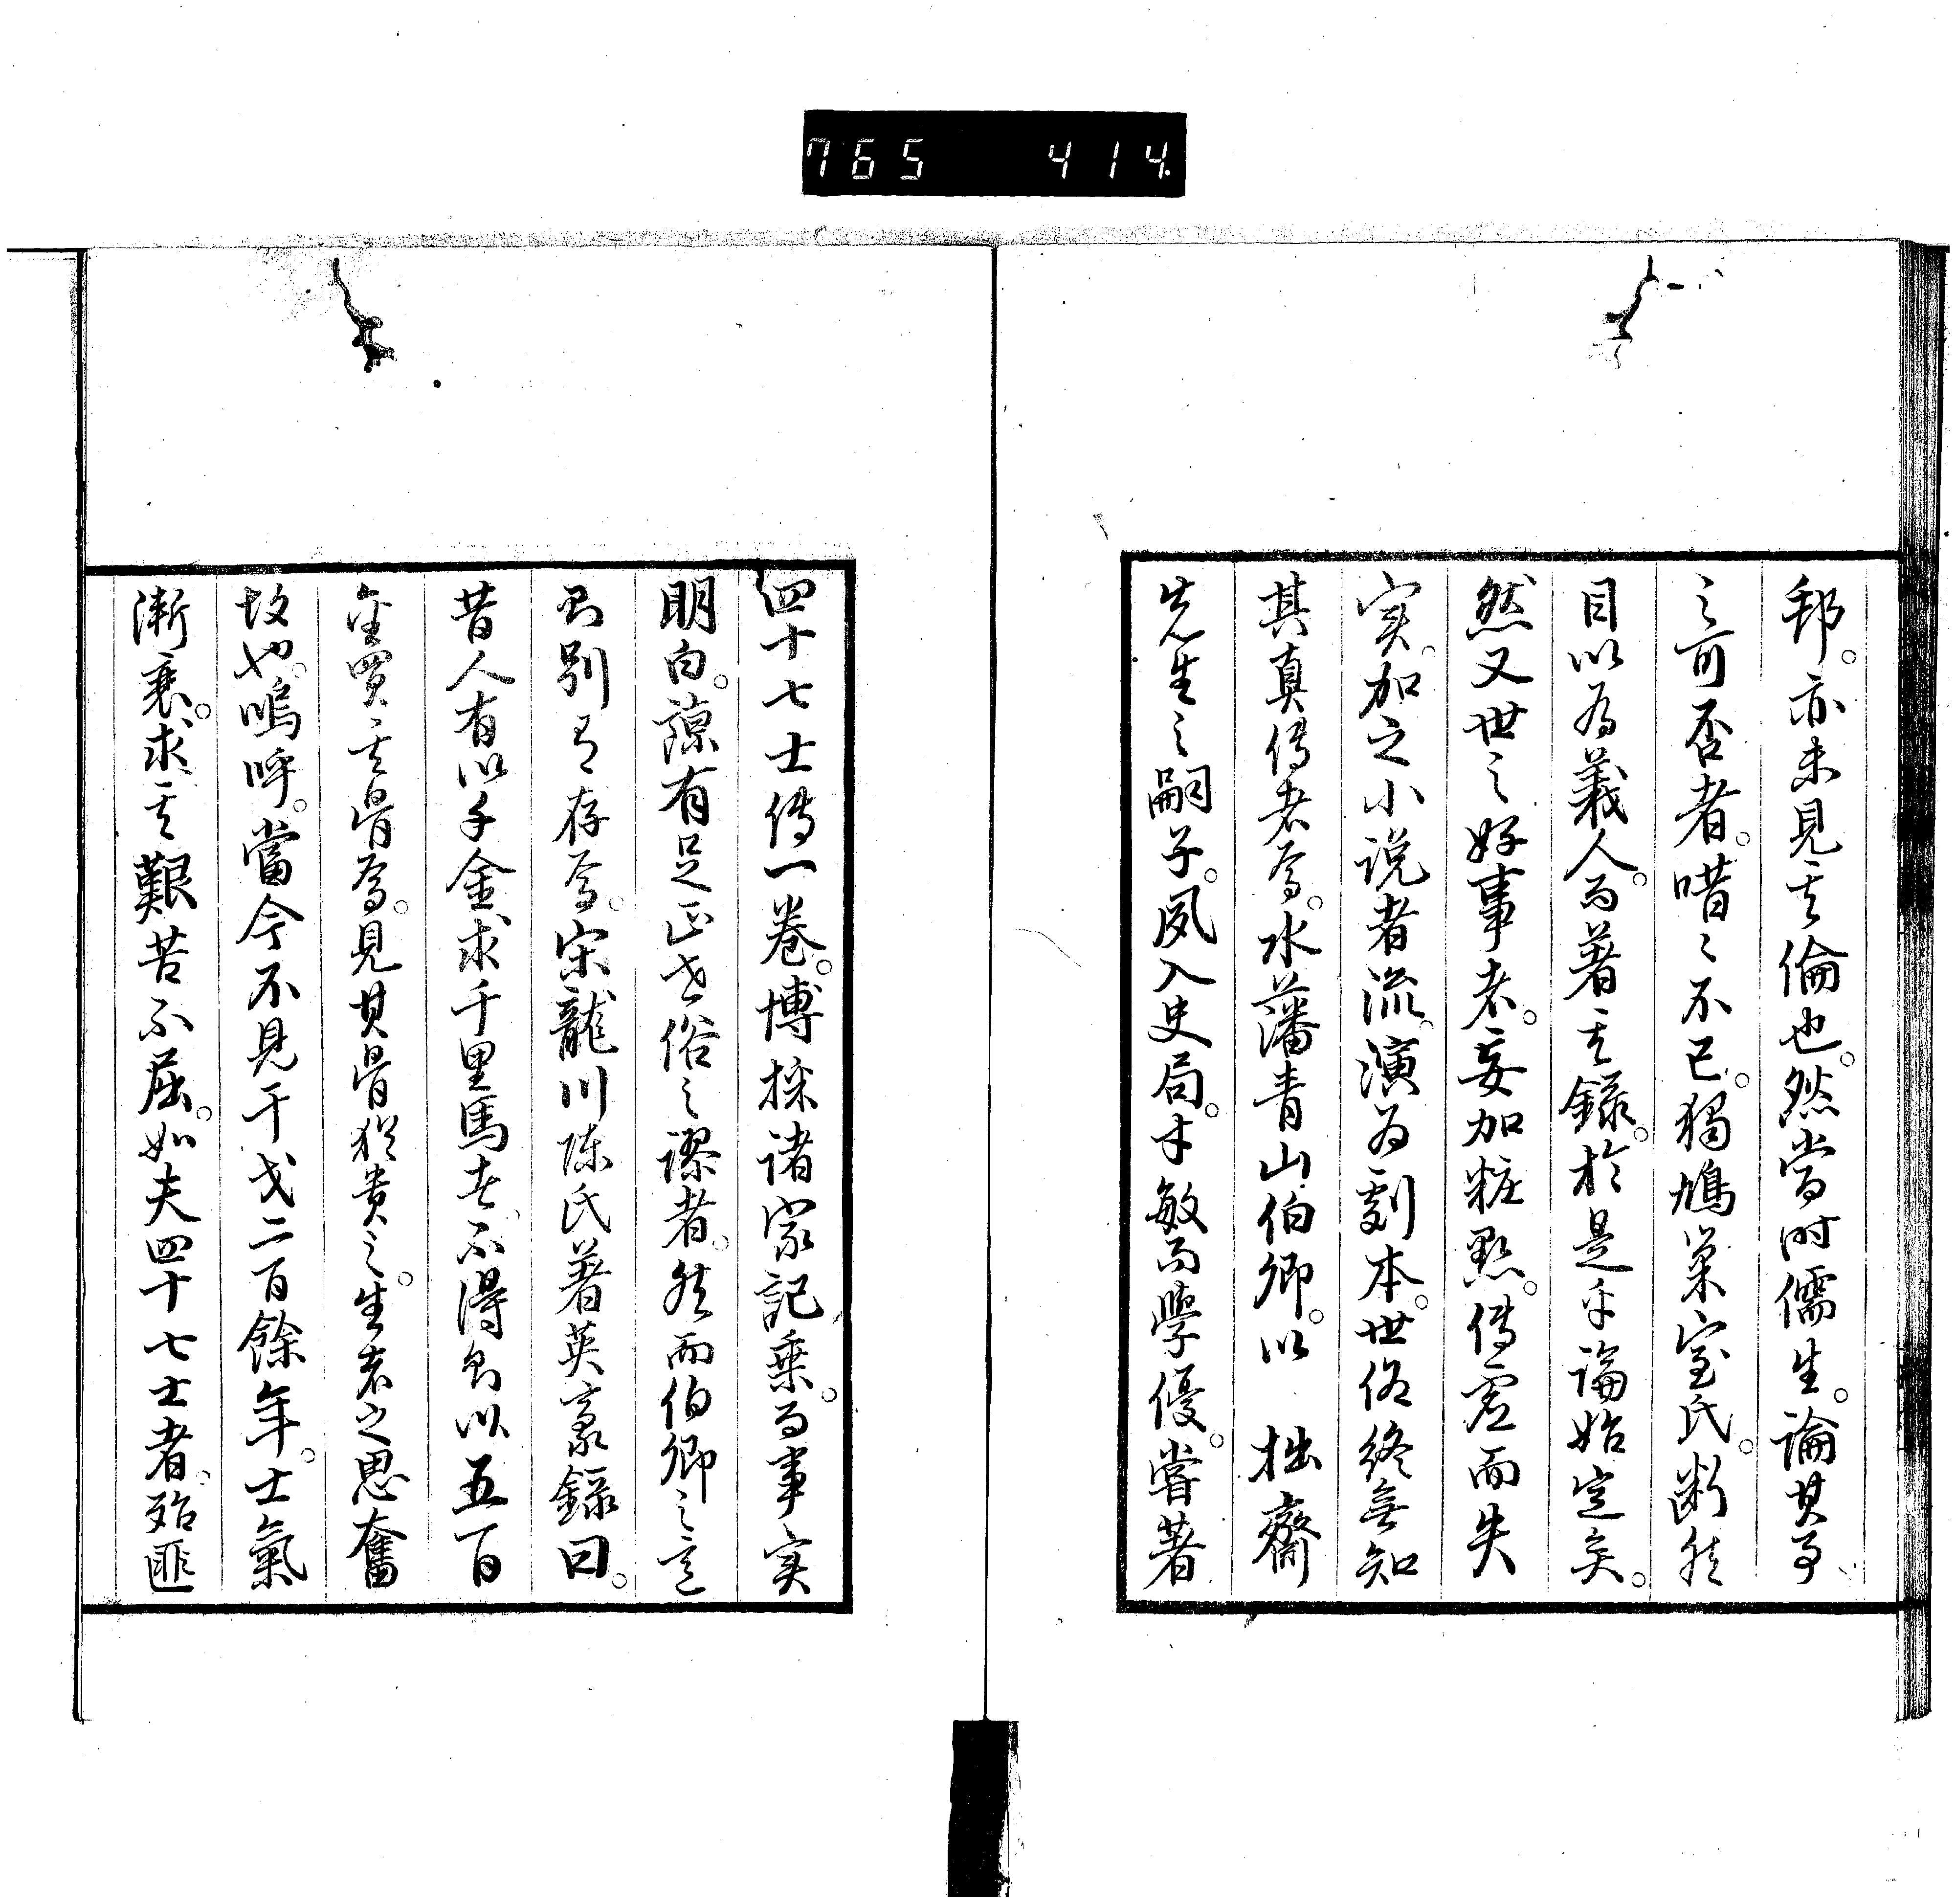 765 414.
邦。亦未見其倫也。然當时儒生。論其事
之可否者。喑〻不已。獨鳩巢室氏。断然
目以為義人。而著其錄。於是乎論始定矣。
然又世之好事者。妄加粧點。傳虛而失
実。加之小説者流。演为劇本。世俗終無知
其真傳者焉。水藩青山伯卿。以 拙齋
先生之嗣子。夙入史局。才敏而學優。嘗著
四十七士傳一卷。博採諸家記乗。而事実
明白。諒有足正世俗之謬者。然而伯卿之意
則別有存焉。宋龍川陳氏著英豪錄曰。
昔人有以千金求千里馬者。不得則以五百
金買其骨焉。見其骨猶貴之。生者之思奮
故也。嗚呼。當今不見干戈二百餘年。士氣
漸衰。求其艱苦不屈。如夫四十七士者。殆匪